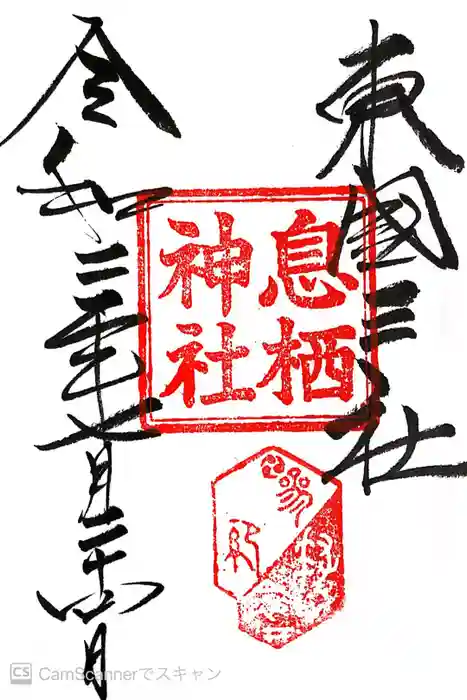 東國三社
息栖
神社
令和二年七月二十四日
CS CamScannerでスキャン